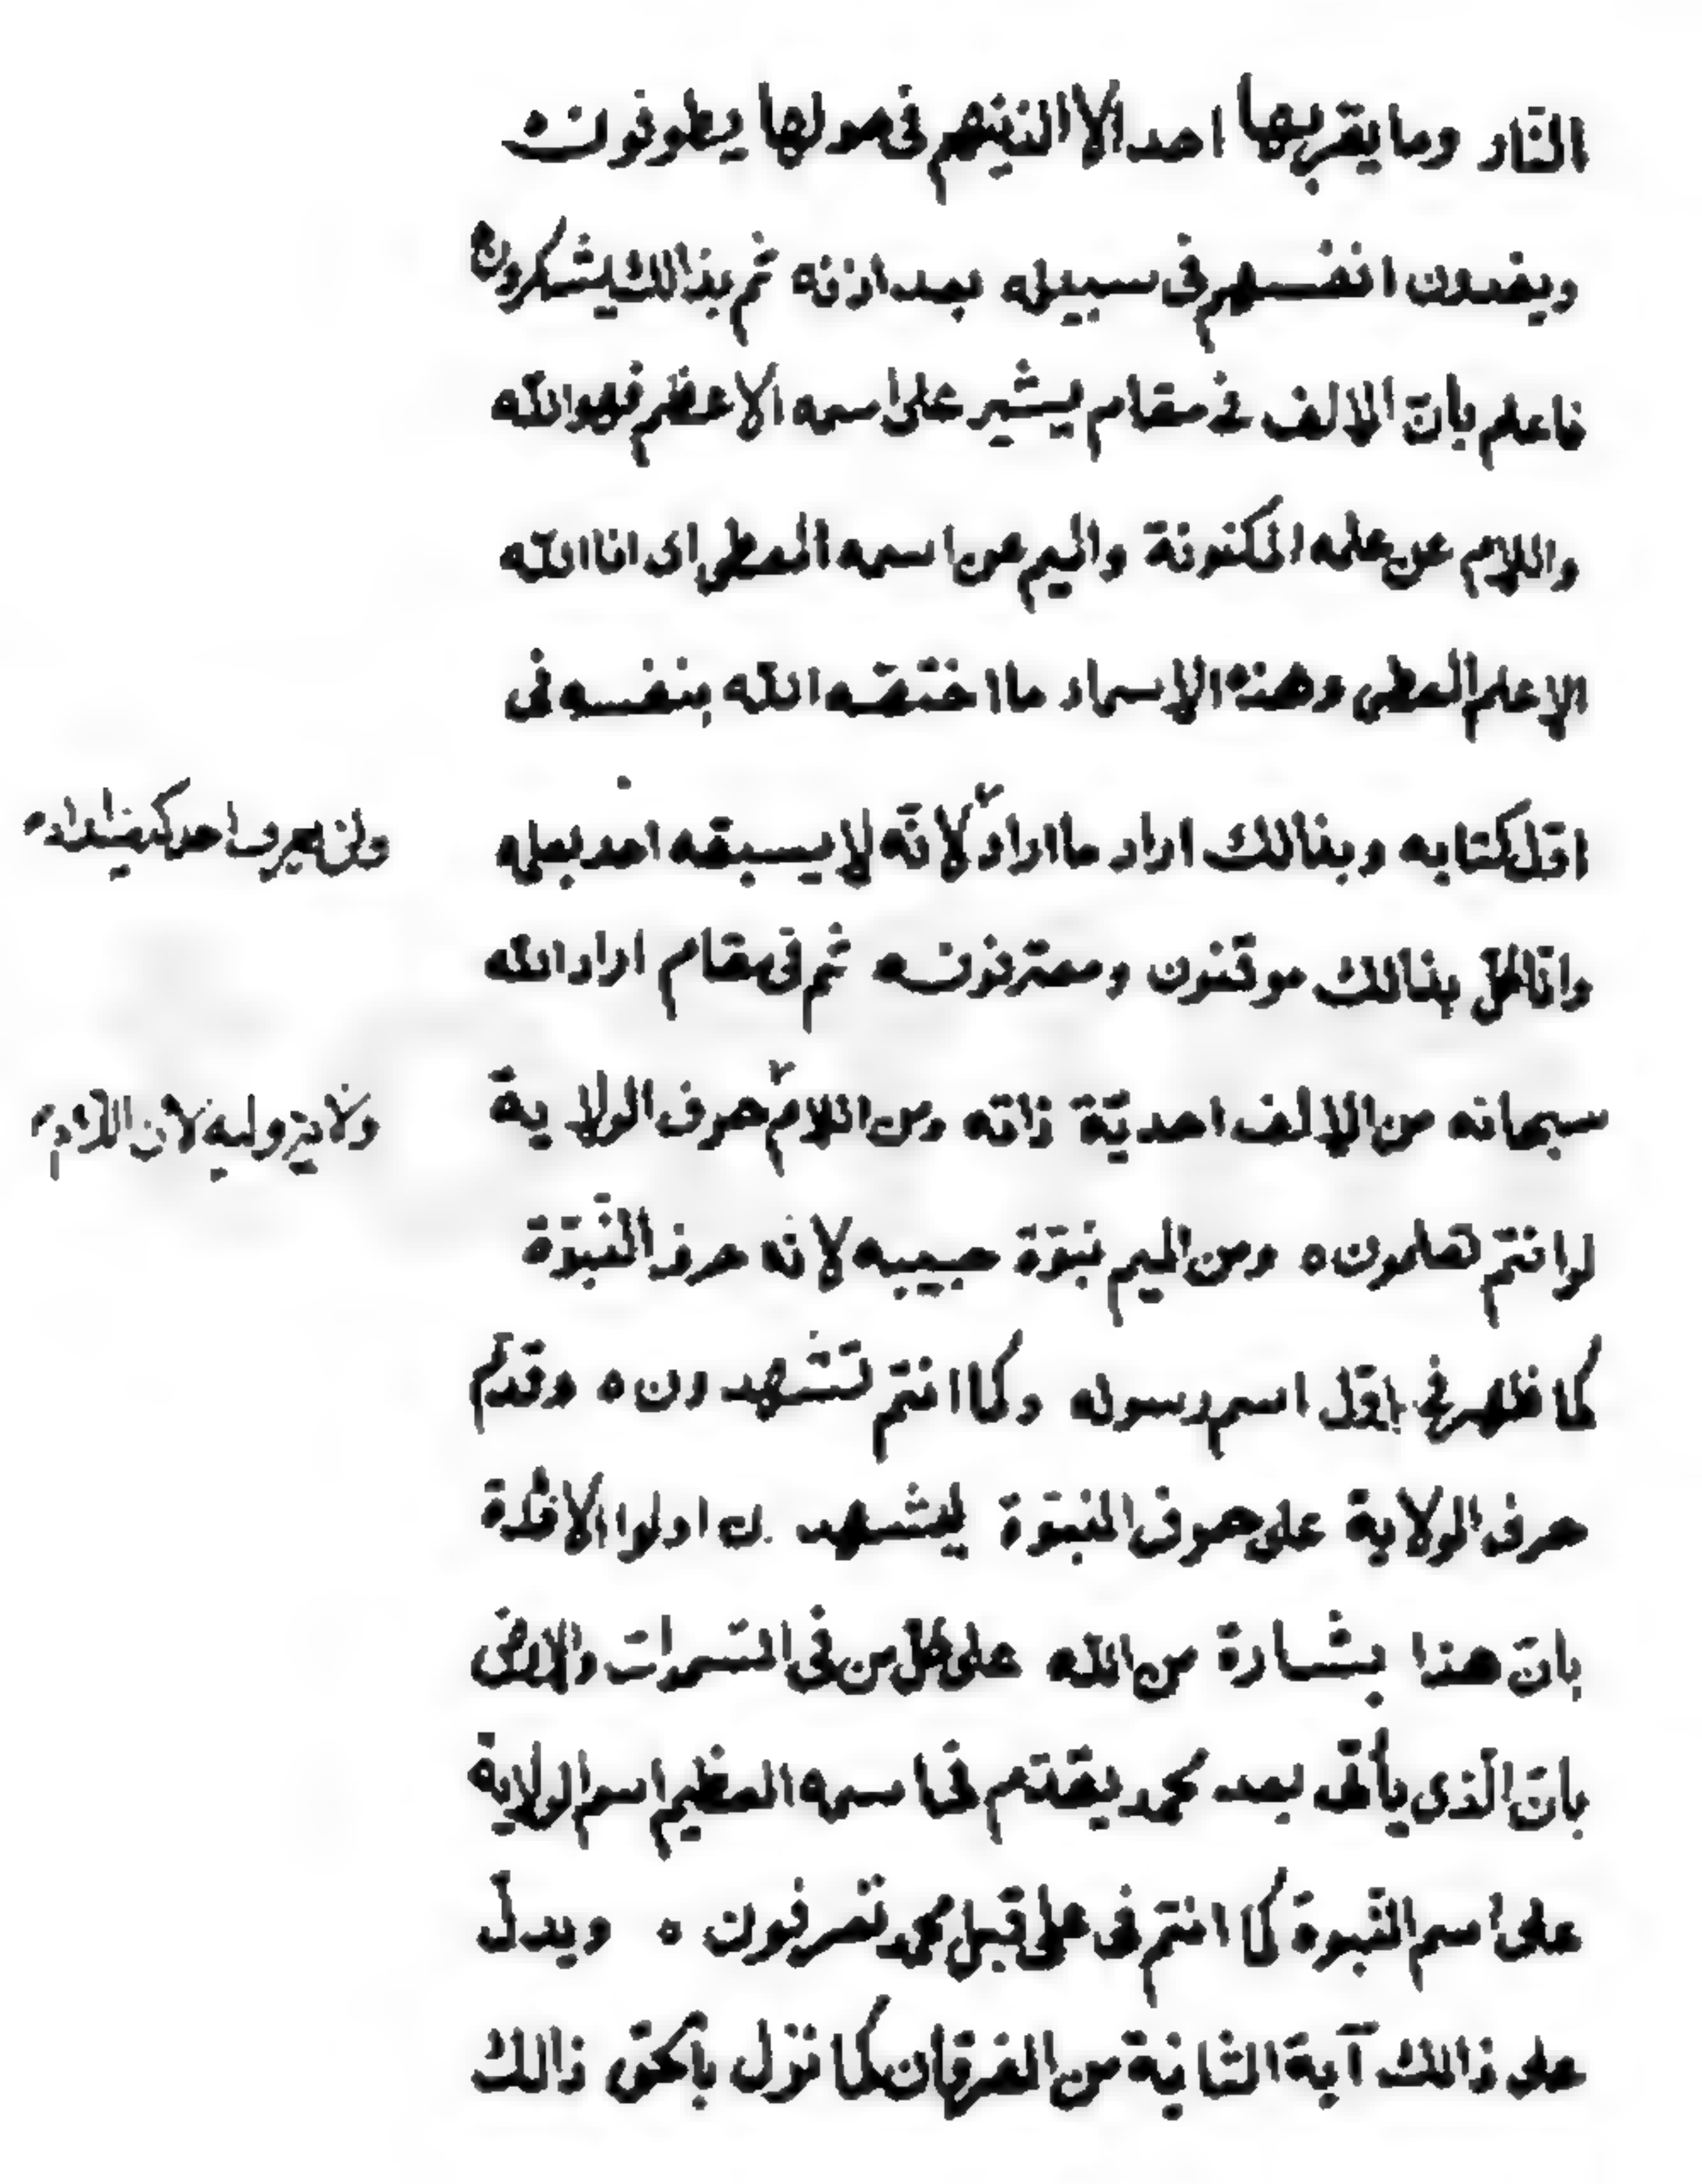 النّار وما يقربها احد الا الذينهم فى حولها يطوفون ه
ويفدون انفسهم فى سبيله بعد اذنه ثم بذالك يشكرون
فاعلم بانّ الالف فى مقام يشير على اسمه الاعظم فهو الله
واللام عن علمه المكنونة والميم عن اسمه المعطى اى انا الله
الاعلم المعطى وهذه الاسماء ما اختصّه الله بنفسه فى
اوّل كتابه وبذالك اراد ما اراد لانّه لا يسبقه احد بعلمه
ولن يعرف احد كيف اراد
وانّا كلّ بذالك موقنون ومعترفون ه ثم فى مقام اراد الله
سبحانه من الالف احديّة ذاته ومن اللام حرف الولاية
ولاية وليه لان اللام
لو انتم تعلمون ه ومن الميم نبوّة حبيبه لانه حرف النّبوّة
كما ظهر فى اوّل اسم رسوله وكما انتم تشهدون ه وقدّم
حرف الولاية على حرف النبوّة ليشهدن اولوا الافئدة
بانّ هذا بشارة من الله على كلّ من فى السّموات والارض
بانّ الّذى يأتى بعد محمد يقدّم فى اسمه العظيم اسم الولاية
على اسم النّبوة كما انتم فى على قبل محمد تعرفون ه ويدلّ
على ذالك آية الثانية من الفرقان كما نزل بالحقّ ذالك